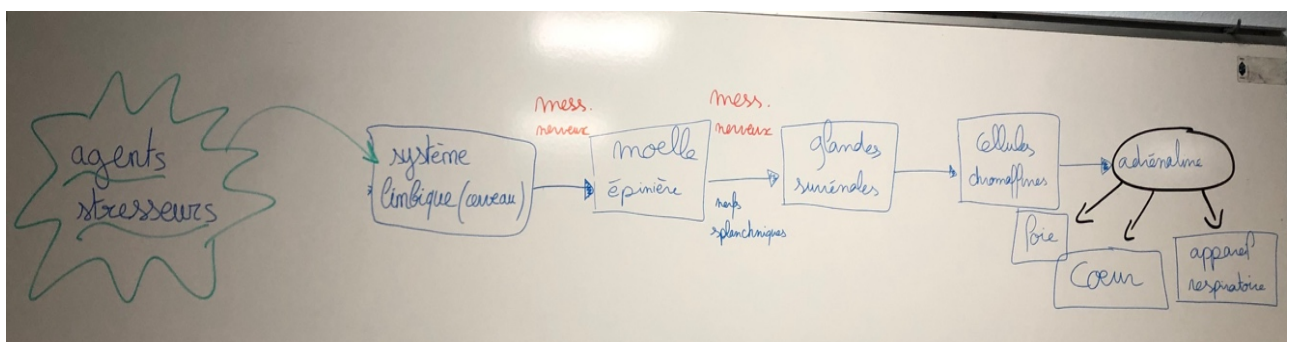 agents
stresseurs
système
limbique (cerveau)
mess.
nerveux
moelle
épinière
mess.
nerveux
nerfs
splanchniques
glandes
surrénales
cellules
chromaffines
adrénaline
foie
Coeur
appareil
respiratoire